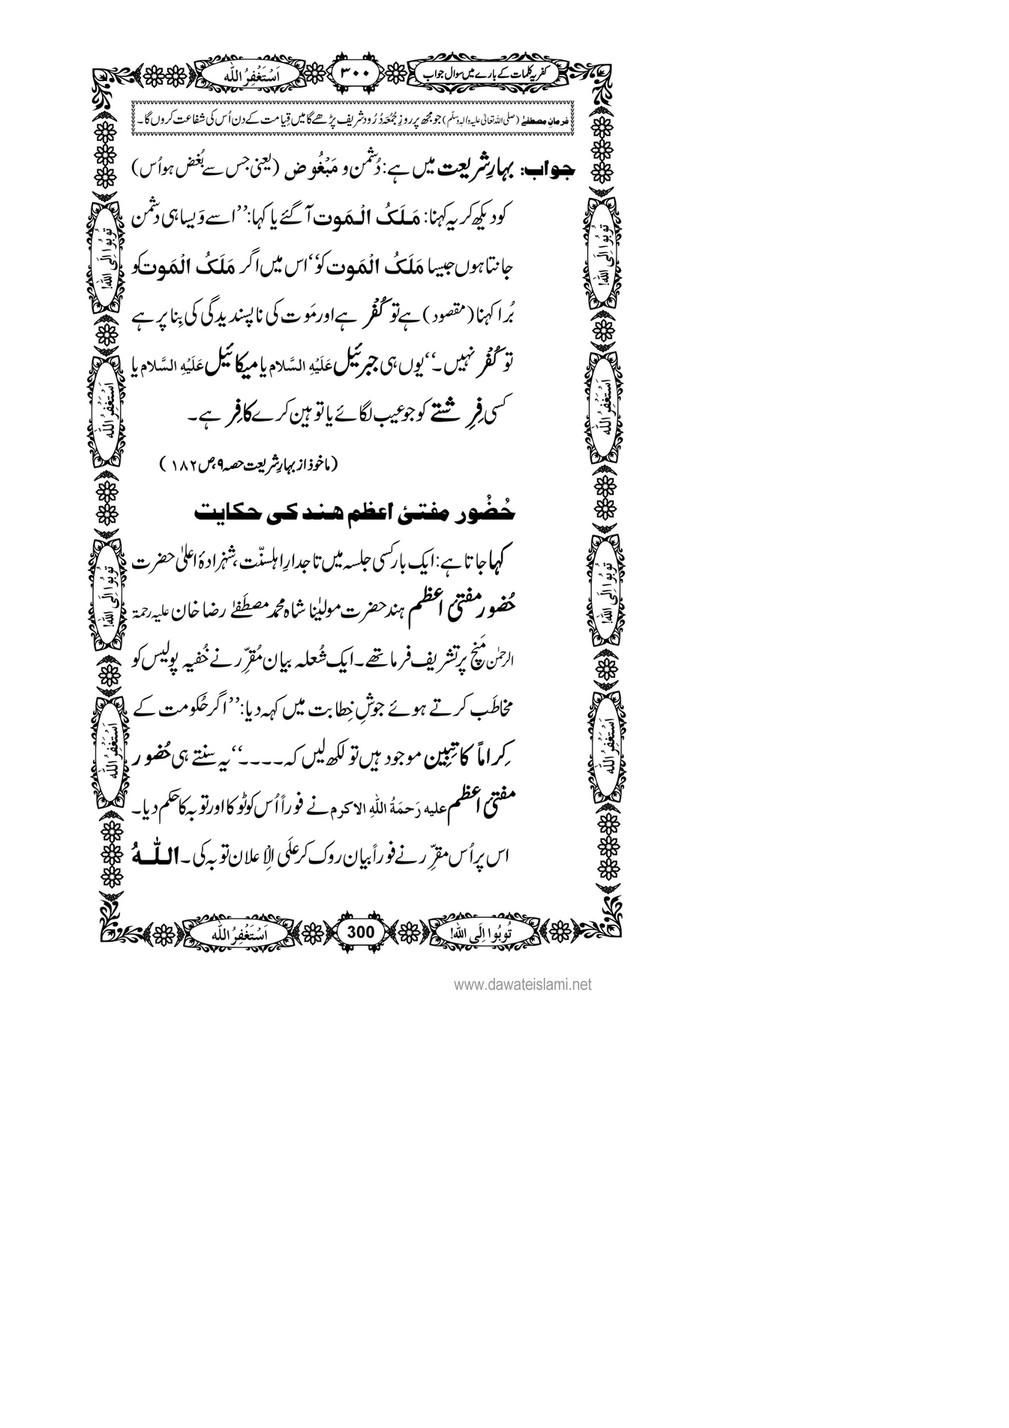 کفریہ کلمات کے بارے میں سوال جواب
٣٠٠
اَسْتَغْفِرُ اللّٰه
فرمانِ مصطفےٰ (صلی اللہ تعالیٰ علیہ والہ وسلم) جو مجھ پر روزِ جُمُعہ دُرُود شریف پڑھے گا میں قِیامت کے دن اُس کی شفاعت کروں گا۔
جواب: بہارِ شریعت میں ہے: دُشمن و مَبْغُوض (یعنی جس سے بُغض ہو اُس)
کو دیکھ کر یہ کہنا: مَلَکُ الْمَوت آ گئے یا کہا: ’’اسے وَیسا ہی دشمن
جانتا ہوں جیسا مَلَکُ الْمَوت کو‘‘ اس میں اگر مَلَکُ الْمَوت کو
بُرا کہنا (مقصود) ہے تو کُفْر ہے اور مَوت کی ناپسندیدگی کی بِنا پر ہے
تو کُفْر نہیں۔‘‘ یوں ہی جبرئیل عَلَیْهِ السَّلام یا میکائیل عَلَیْهِ السَّلام یا
کسی فِرِشتے کو جو عیب لگائے یا توہین کرے کافِر ہے۔
(ماخوذ از بہارِ شریعت حصہ ۹، ص ۱۸۲)
حُضُور مفتیٔ اعظم ھند کی حکایت
کہا جاتا ہے: ایک بار کسی جلسہ میں تاجدارِ اہلسنّت، شہزادۂ اعلیٰ حضرت
حُضُور مفتیٔ اعظم ہند حضرت مولیٰنا شاہ محمد مصطَفٰے رضا خان علیہ رحمۃ
الرحمٰن مَنچ پر تشریف فرما تھے۔ ایک شُعلہ بیان مُقرِّر نے خُفیہ پولیس کو
مخاطَب کرتے ہوئے جوشِ خِطابت میں کہہ دیا: ’’اگر حُکومت کے
کِراماً کاتِبِین موجود ہیں تو لکھ لیں کہ ۔۔۔۔‘‘ یہ سنتے ہی حُضور
مفتیٔ اعظم علیه رَحمَةُ اللّٰهِ الاکرم نے فوراً اُس کو ٹوکا اور توبہ کا حکم دیا۔
اس پر اُس مقرِّر نے فوراً بیان روک کر علَی الْاِعلان توبہ کی۔ اللّٰہُ
تُوبُوا اِلَی اللّٰه!
اَسْتَغْفِرُ اللّٰه
تُوبُوا اِلَی اللّٰه!
اَسْتَغْفِرُ اللّٰه
تُوبُوا اِلَی اللّٰه!
اَسْتَغْفِرُ اللّٰه
تُوبُوا اِلَی اللّٰه!
اَسْتَغْفِرُ اللّٰه
تُوبُوا اِلَی اللّٰه!
300
اَسْتَغْفِرُ اللّٰه
www.dawateislami.net